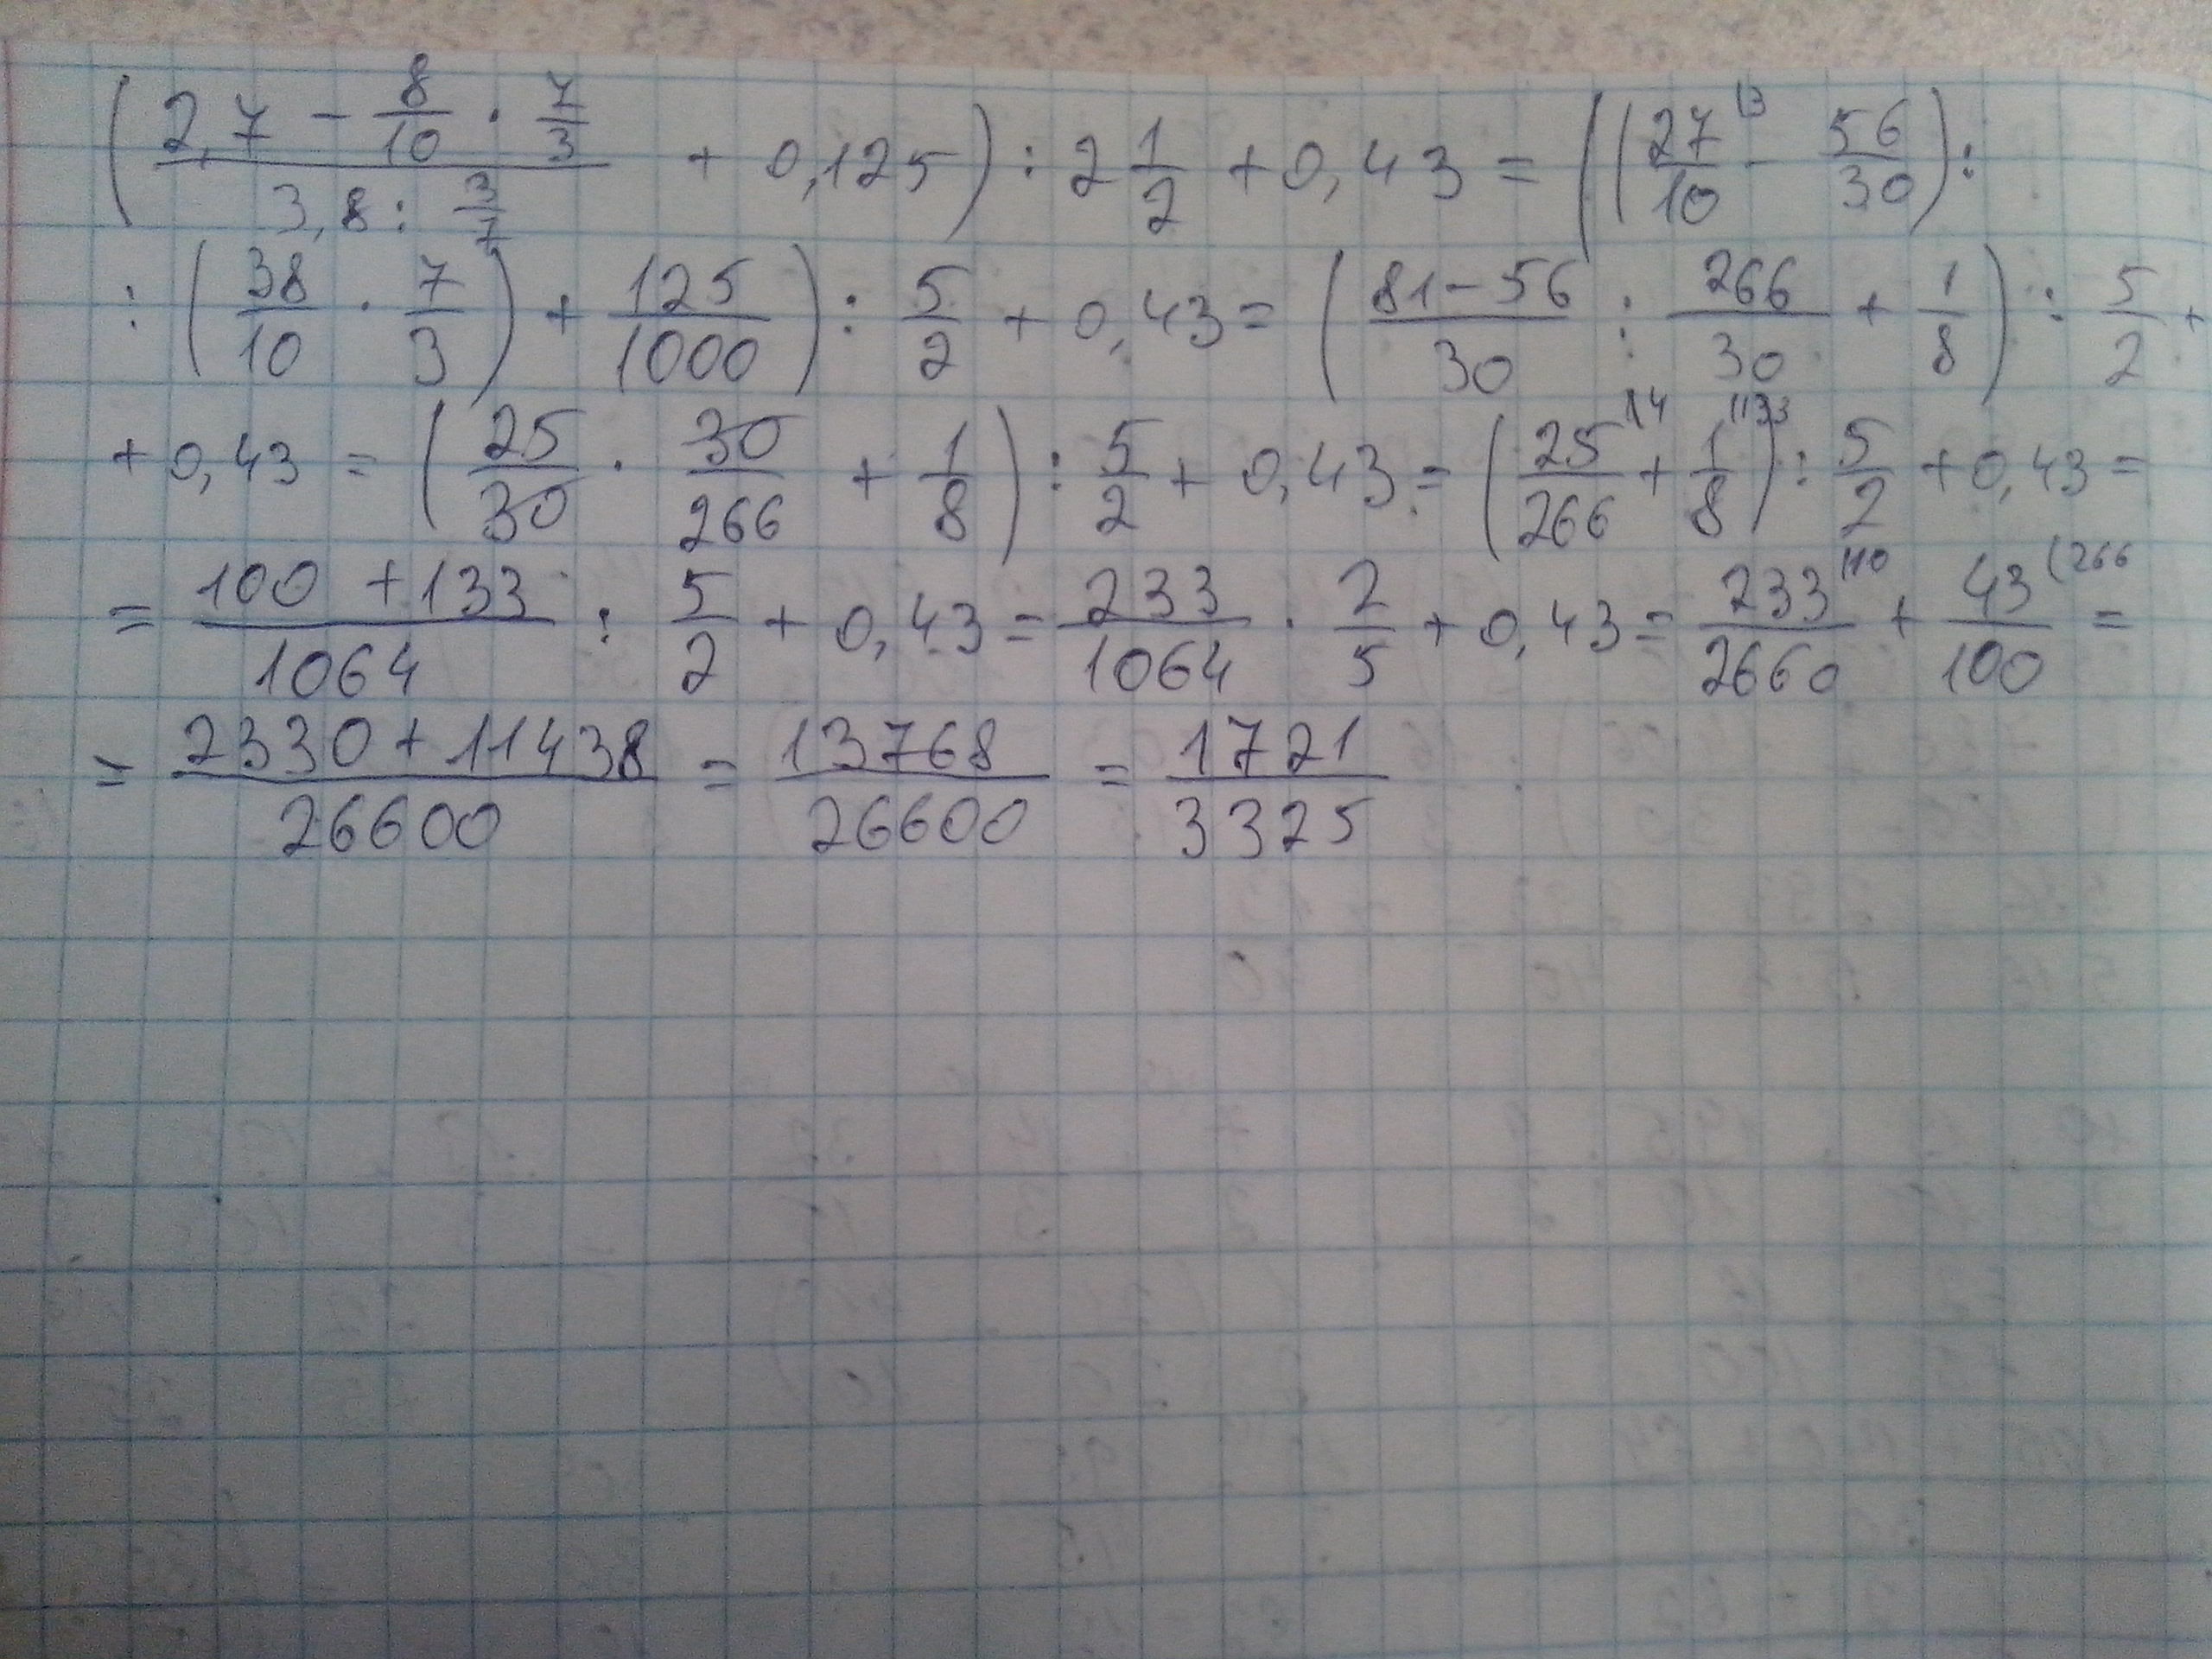 (2,7 - 8/10 · 7/3 / 3,8 : 3/7 + 0,125) : 2 1/2 + 0,43 = ((27/10 (3 - 56/30) :
: (38/10 · 7/3) + 125/1000) : 5/2 + 0,43 = (81-56/30 : 266/30 + 1/8) : 5/2 +
+ 0,43 = (25/30 · 30/266 + 1/8) : 5/2 + 0,43 = (25/266 (4 + 1/8 (133) : 5/2 + 0,43 =
= 100 + 133/1064 : 5/2 + 0,43 = 233/1064 · 2/5 + 0,43 = 233/2660 (10 + 43/100 (266 =
= 2330 + 11438/26600 = 13768/26600 = 1721/3325